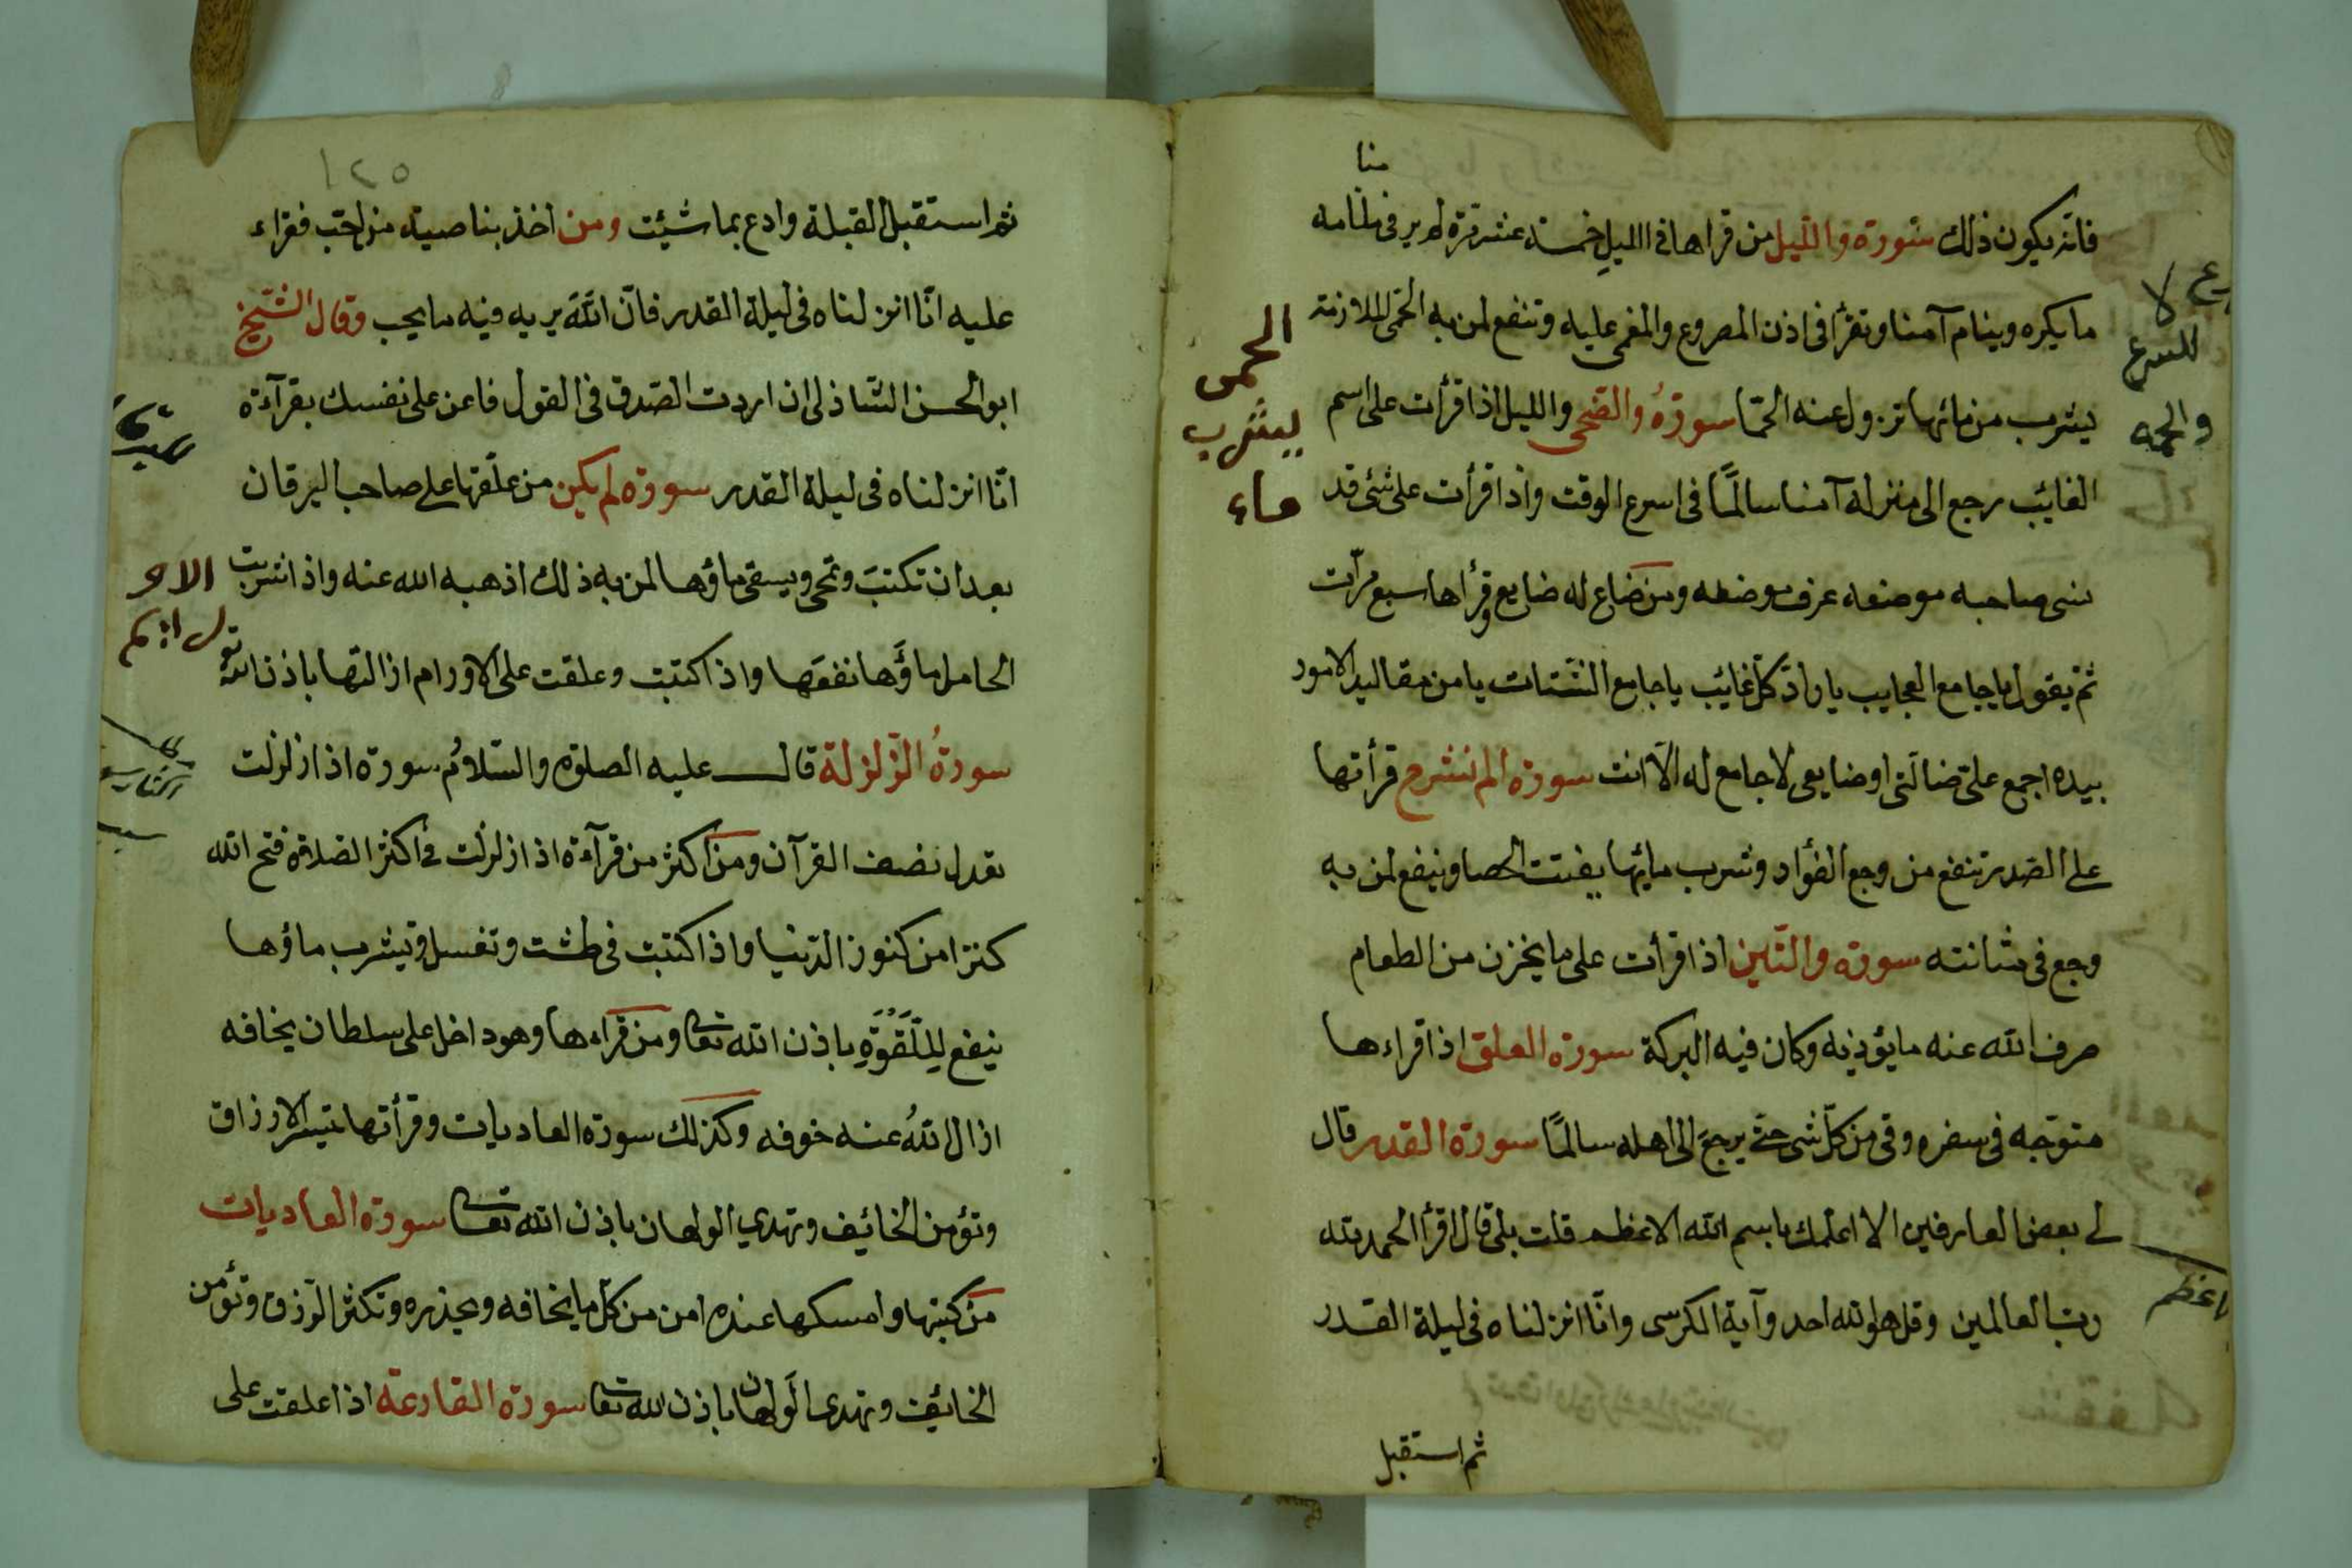 فانه يكون ذلك سورة والليل من قراها فى الليل خمسة عشر مرة لم ير فى منامه
ما يكره وينام آمنا وتقرأ فى اذن المصروع والمغمى عليه وتنفع لمن به الحمى الملازمة
يشرب من مائها تزول عنه الحمّا سورةُ والضحى والليل اذا قرأت على اسم
الغائب يرجع الى منزله آمنا سالمًا فى اسرع الوقت واذا قرأت على شئ قد
نسى صاحبه موضعه عرف موضعه ومن ضاع له ضايع وقرأها سبع مرّات
ثمّ يقول يا جامع العجايب يا رادّ كلّ غائب يا جامع الشتات يا من مقاليد الامور
بيده اجمع علىّ ضالّتى او ضايعى لا جامع له الّا انت سورة الم نشرح قرأتها
على الصدر تنفع من وجع الفؤاد وشرب مايها يفتت الحصا وينفع لمن به
وجع فى مثانته سورة والتّين اذا قرأت على ما يخزن من الطعام
صرف الله عنه ما يؤذيه وكان فيه البركة سورة العلق اذا قراءها
متوجّه فى سفره وقى من كلّ شى حتى يرجعَ الى اهله سالمًا سورة القدر قال
لى بعض العارفين الا اعلمك باسم الله الاعظم قلت بلى قال اقرأ الحمد لله
رب العالمين وقل هو الله احد وآية الكرسى وانّا انزلناه فى ليلة القدر
ثم استقبل
الحمى
يشرب
ماء
للسرع
١٢٥
ثم استقبل القبلة وادع بما شئت ومن اخذ بناصية من احب فقراء
عليه انّا انزلناه فى ليلة القدر فانّ اللهَ يريه فيه ما يحب وقال الشيخ
ابو الحسن الشاذلى ان اردت الصدق فى القول فاعن على نفسك بقرآءة
انّا انزلناه فى ليلة القدر سورة لم يكن من علّقها على صاحب اليرقان
بعد ان تكتبَ وتمحى ويسقى ماؤها لمن به ذلك اذهبه الله عنه واذا شربت
الحامل ماؤَها نفعَها واذا كتبت وعلقت على الاورام ازالتها باذن الله تع
سورةُ الزّلزلة قال عليه الصلوة والسّلامُ سورة اذا زلزلت
تعدل نصف القرآن ومن اكثر من قرآءة اذا زلزلت فى اكثر الصلاة فتح الله
كنزا من كنوز الدّنيا واذا كتبت فى طشت وتغسل ويشرب ماؤها
ينفع لِلّقوَةِ باذن الله تعا ومن قراءها وهو داخل على سلطان يخافه
ازال اللهُ عنه خوفه وكذلك سورة العاديات وقرأتها تيسّر الارزاق
وتؤمن الخائف وتهدي الولهان باذن الله تعا سورة العاديات
من كتبها وامسكها عنده امن من كل ما يخافه ويحذره وتكثر الرّزق وتؤمن
الخائف وتهدى الولهان باذن الله تعا سورة القارعة اذا علقت على